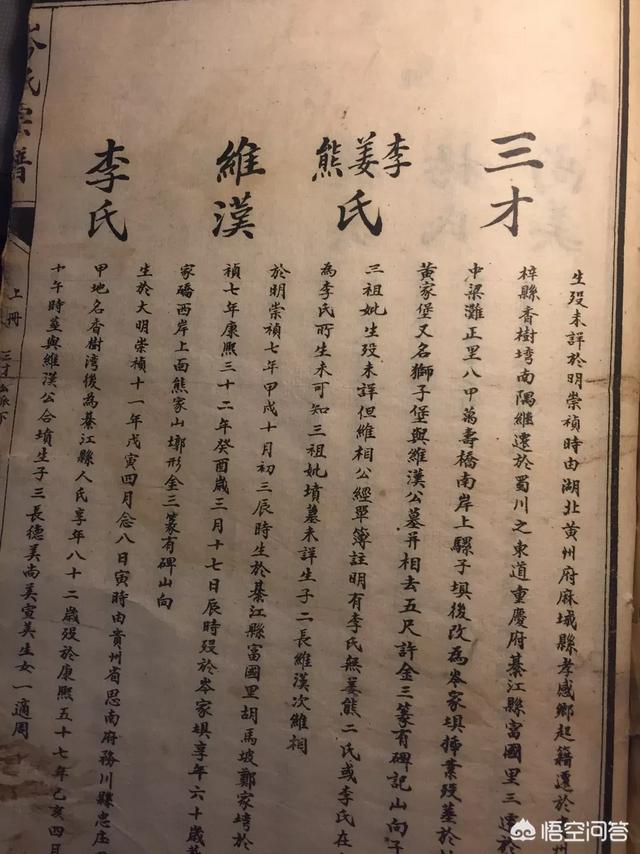 三才
生歿未詳於明崇禎時由湖北黃州府麻城縣孝感鄉起籍遷於貴州
梓縣香樹塆南隅繼遷於蜀川之東道重慶府綦江縣富國里三遷於
中梁灘正里八甲萬壽橋南岸上騾子埧後改為岑家埧插業歿葬於
黃家堡又名獅子堡與維漢公墓并相去五尺許金三篆有碑記山向子
李姜熊氏
三祖妣生歿未詳但維相公經單簿註明有李氏無姜熊二氏或李氏在
為李氏所生未可知三祖妣墳墓未詳生子二長維漢次維相
維漢
於明崇禎七年甲戌十月初三辰時生於綦江縣富國里胡馬坡鄭家塆於
禎七年康熙三十二年癸酉歲三月十七日辰時歿於岑家埧享年六十歲葬
家礄西岸上面熊家山墎形金三篆有碑山向
李氏
生於大明崇禎十一年戊寅四月念八日寅時由貴州省思南府務川縣忠庄
甲地名香樹湾後為綦江縣人氏享年八十二歲歿於康熙五十七年己亥四月
十午時葬與維漢公合墳生子三長德美尚美宣美生女一適周
岑氏宗譜
上冊
三才公派下
悟空问答